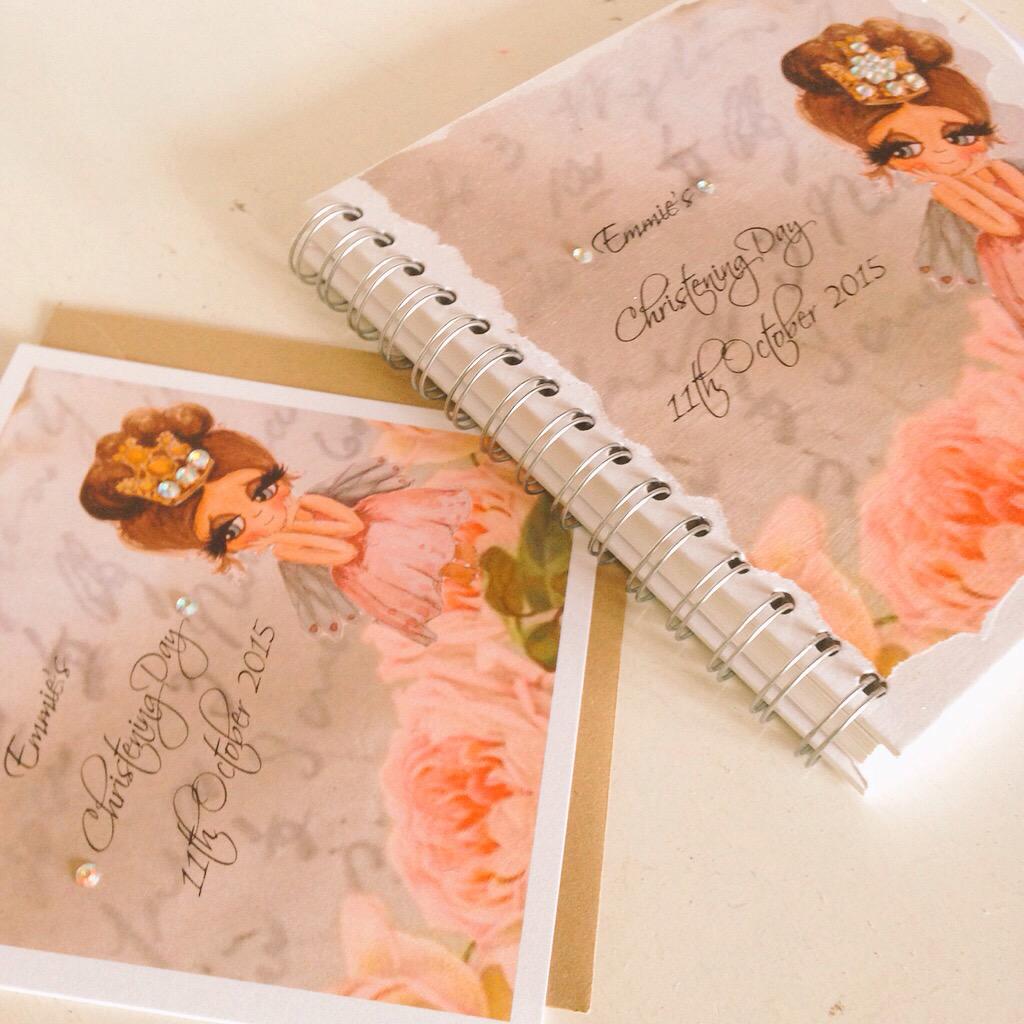 Emmie's
Christening Day
11th October 2015
Emmie's
Christening Day
11th October 2015